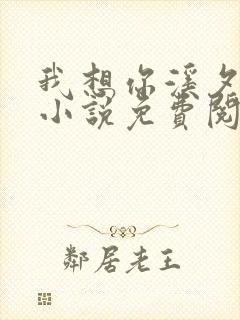 我想你溪夕
小说免費閱
鄰居老王